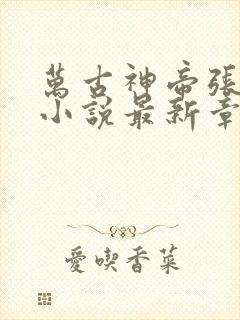 萬古神帝張
小說最新章
愛喫香菜